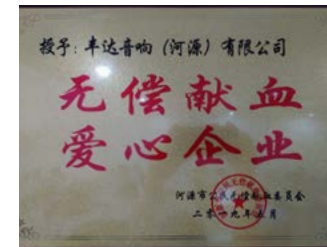 授予：丰达音响（河源）有限公司
无偿献血
爱心企业
河源市公民无偿献血委员会
二〇一九年五月